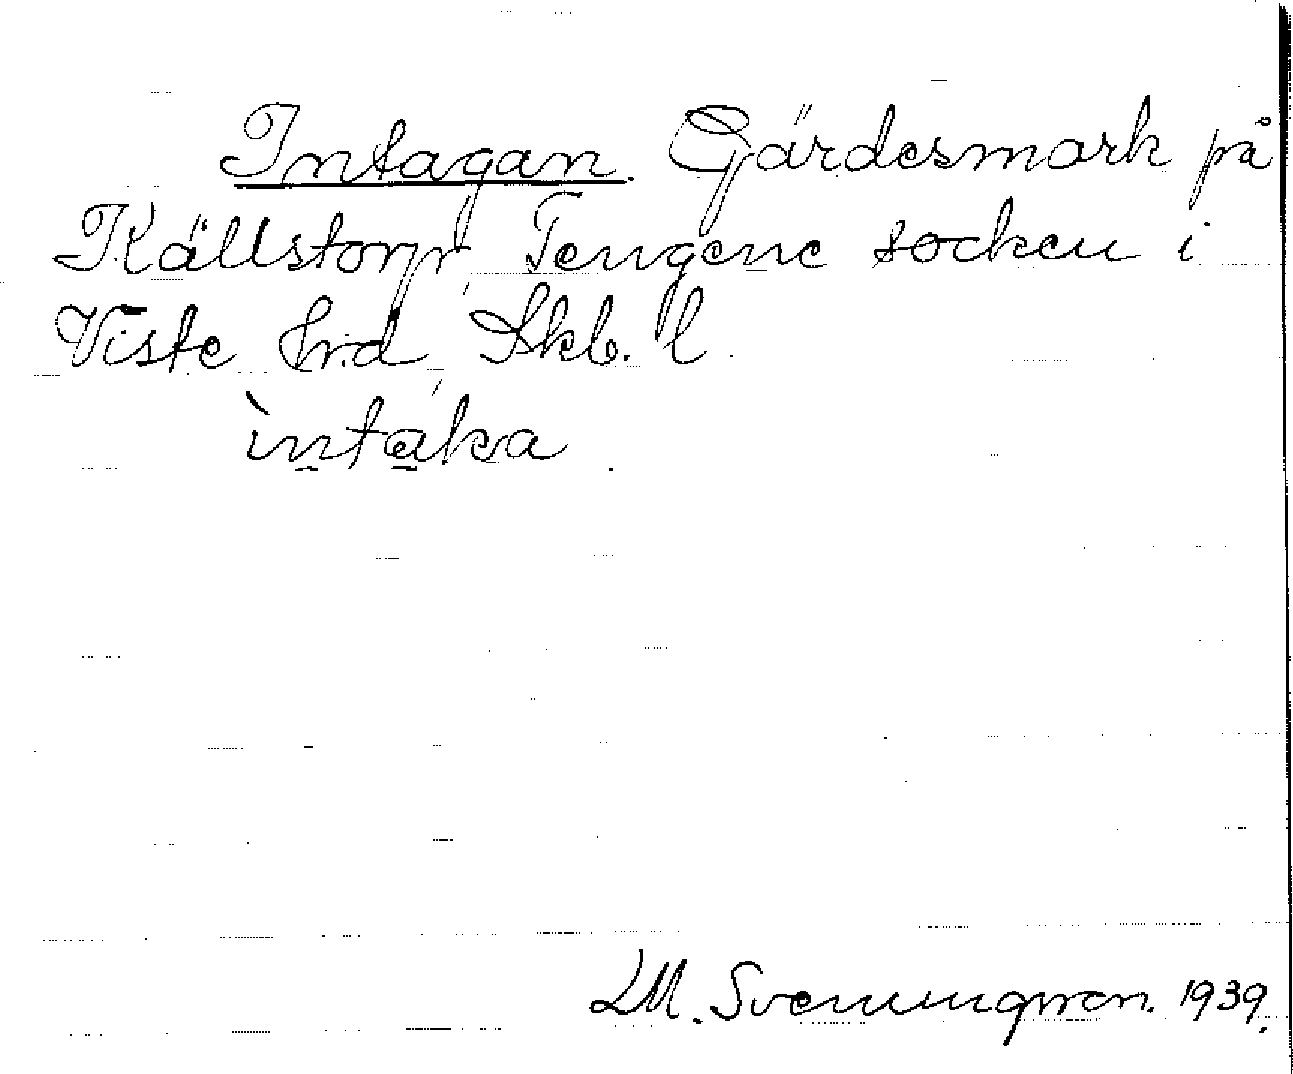 Intagan. Gärdesmark på
Källstorp, Tengene socken i
Viste hrd, Skb. l.
ìntaka
LM. Svenungsson. 1939.